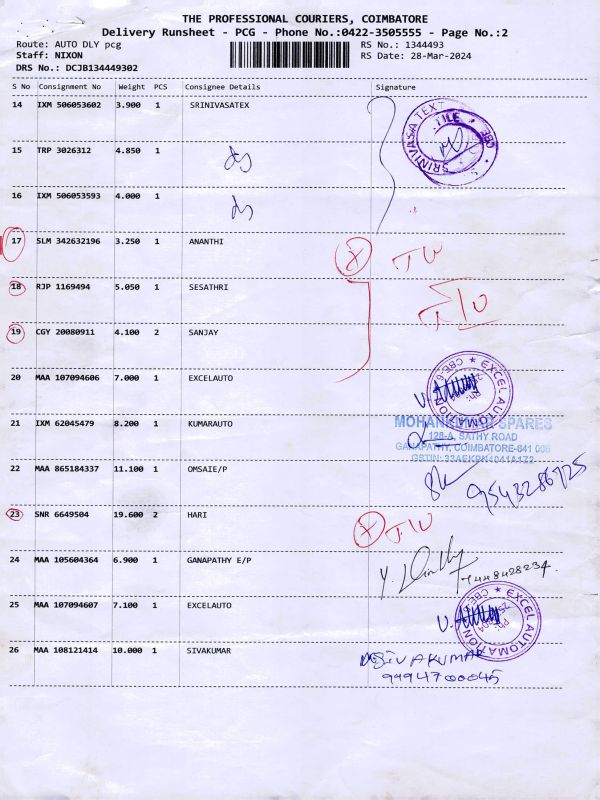 THE PROFESSIONAL COURIERS, COIMBATORE
Delivery Runsheet - PCG - Phone No.:0422-3505555 - Page No.:2
Route: AUTO DLY pcg
RS No.: 1344493
Staff: NIXON
RS Date: 28-Mar-2024
DRS No.: DCJB134449302
S No Consignment No Weight PCS Consignee Details Signature
14 IXM 506053602 3.900 1 SRINIVASATEX
SRINIVASA TEXTILE CBE
15 TRP 3026312 4.850 1
16 IXM 506053593 4.000 1
17 SLM 342632196 3.250 1 ANANTHI
18 RJP 1169494 5.050 1 SESATHRI
19 CGY 20080911 4.100 2 SANJAY
20 MAA 107094606 7.000 1 EXCELAUTO
EXCEL AUTOMATION
21 IXM 62045479 8.200 1 KUMARAUTO
MOHANKUMAR SPARES
128-A, SATHY ROAD
GANAPATHY, COIMBATORE-641 006
22 MAA 865184337 11.100 1 OMSAIE/P
9543286725
23 SNR 6649504 19.600 2 HARI
24 MAA 105604364 6.900 1 GANAPATHY E/P
7448428234
25 MAA 107094607 7.100 1 EXCELAUTO
EXCEL AUTOMATION
26 MAA 108121414 10.000 1 SIVAKUMAR
SIVAKUMAR
9994700045